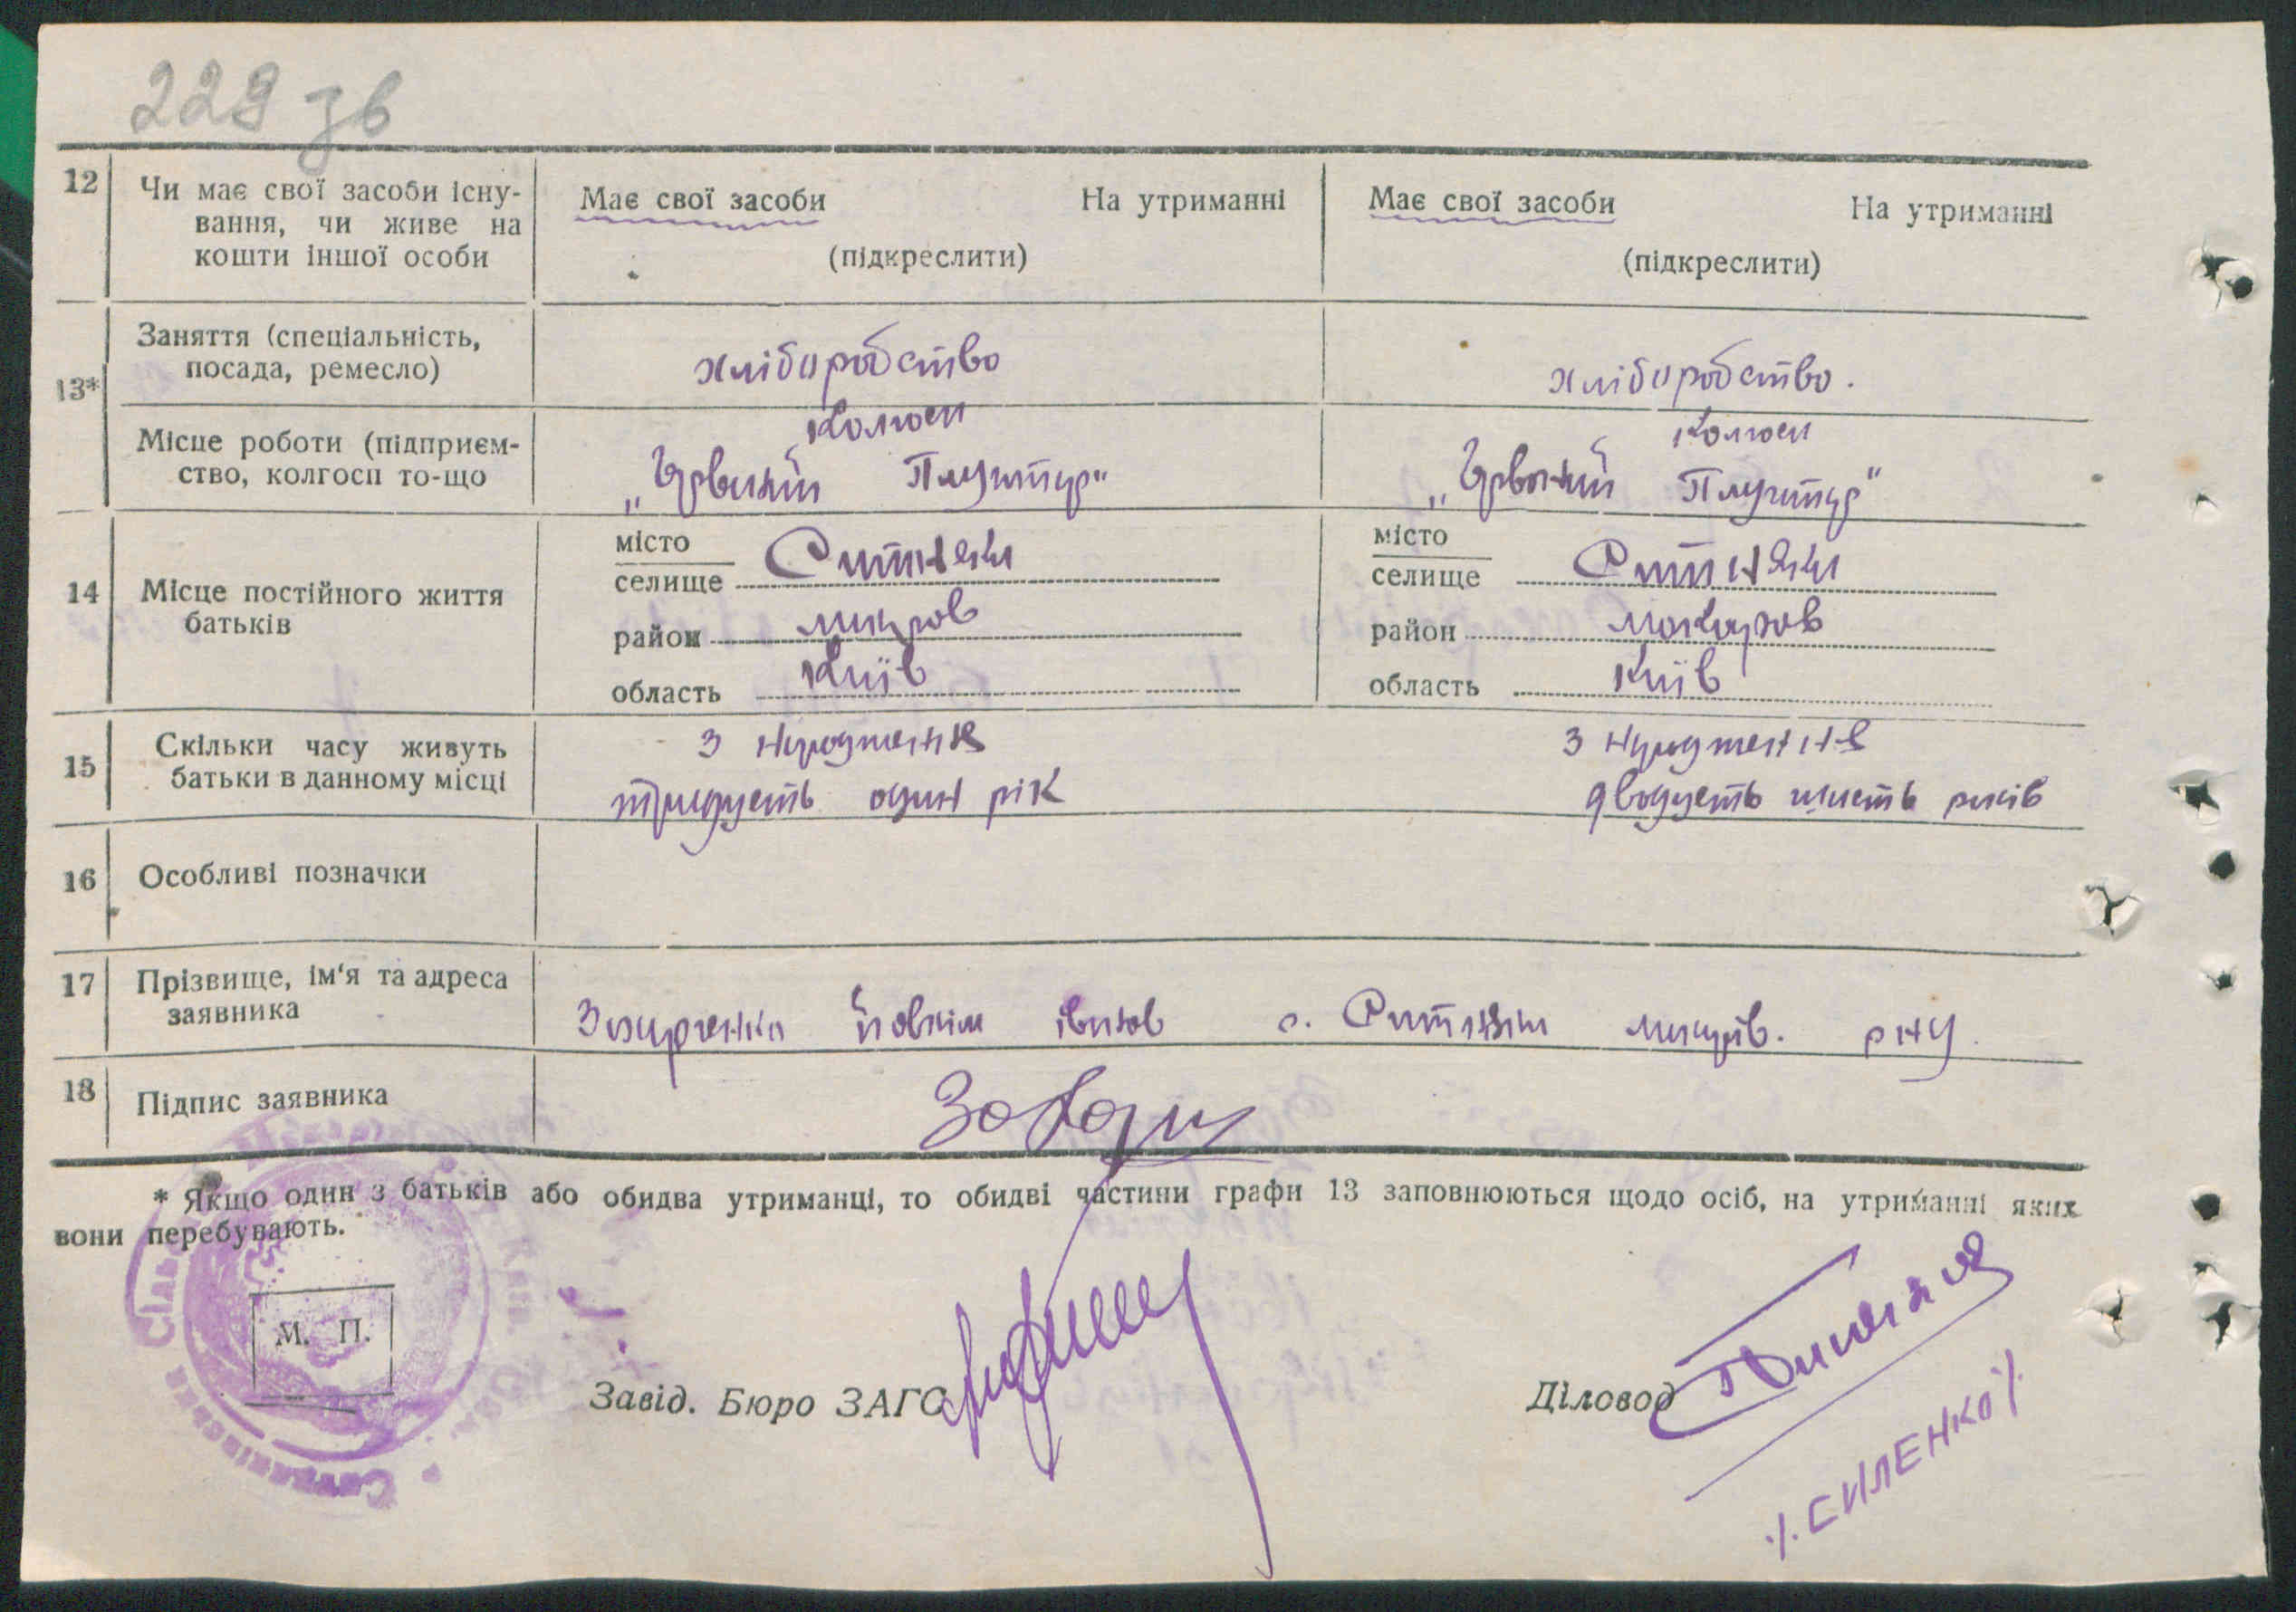 229 зв
12 Чи має свої засоби існу-
вання, чи живе на
кошти іншої особи
Має свої засоби На утриманні
(підкреслити)
Має свої засоби На утриманні
(підкреслити)
13*
Заняття (спеціальність,
посада, ремесло)
хліборобство
хліборобство.
Місце роботи (підприєм-
ство, колгосп то-що
Колгосп
Плугатар"
Колгосп
Плугатар"
14 Місце постійного життя
батьків
місто
селище Ситняки
район макаров
область Київ
місто
селище Ситняки
район макаров
область Київ
15 Скільки часу живуть
батьки в данному місці
З народження
тридцять один рік
З народження
двадцять шість років
16 Особливі позначки
17 Прізвище, ім'я та адреса
заявника
Захарченко йовхим іванов с. Ситняки макарів. р-ну
18 Підпис заявника
* Якщо один з батьків або обидва утриманці, то обидві частини графи 13 заповнюються щодо осіб, на утриманні яких
вони перебувають.
М. П.
Завід. Бюро ЗАГС
Діловод
/. СИЛЕНКО /